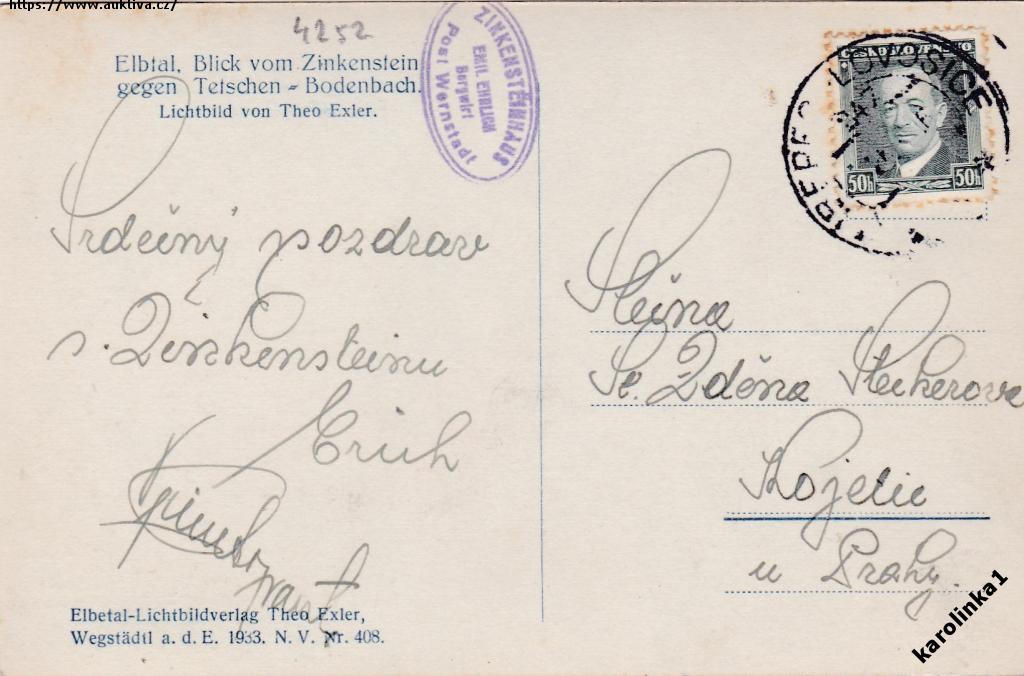 https://www.auktiva.cz/
4252
Elbtal, Blick vom Zinkenstein
gegen Tetschen - Bodenbach.
Lichtbild von Theo Exler.
ZINKENSTEINHAUS
EMIL EHRLICH
Bergwirt
Post Wernstadt
ČESKOSLOVENSKO
50h 50h
LIBEREC - LOVOSICE
Srdečný pozdrav
z. Zinkensteinu
Erich
Slečna
Sl. Zděna Stekerova
Kojetic
u Prahy.
Elbetal-Lichtbildverlag Theo Exler,
Wegstädtl a. d. E. 1933. N. V. Nr. 408.
karolinka1